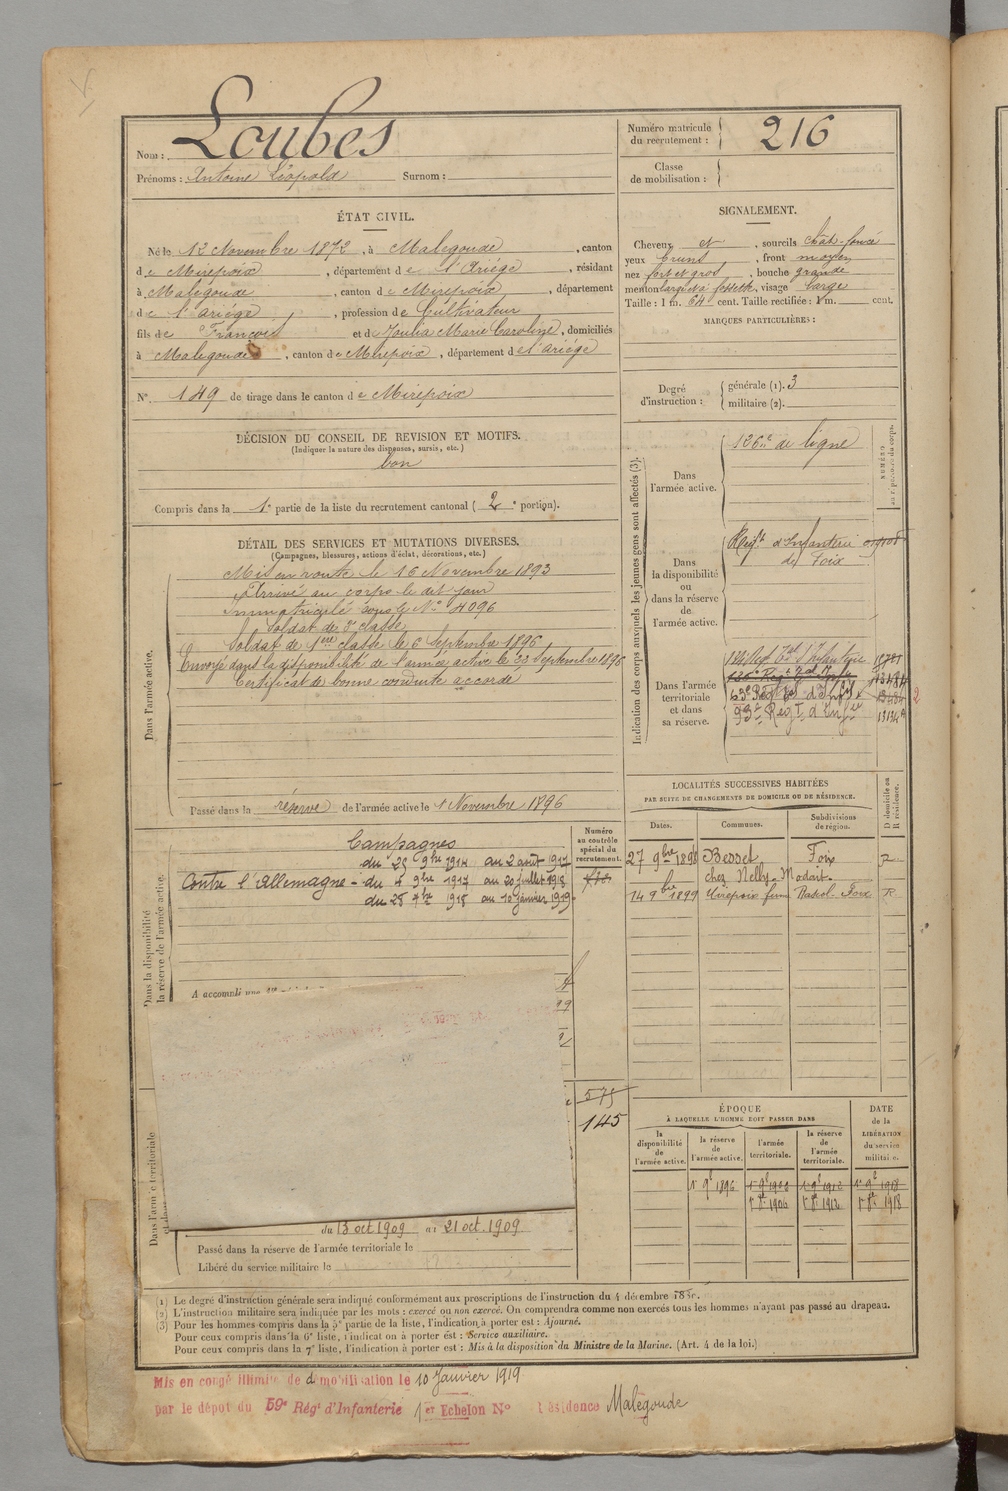 Nom : Loubes
Prénoms : Antoine Léopold Surnom :
Numéro matricule du recrutement : 216
Classe de mobilisation :
ÉTAT CIVIL.
Né le 12 Novembre 1872, à Malegoude, canton
de Mirepoix, département de l'Ariége, résidant
à Malégoude, canton de Mirepoix, département
de l'ariége, profession de Cultivateur
fils de François et de Joulia Marie Caroline, domiciliés
à Malegoude, canton de Mirepoix, département de l'ariége
N° 149 de tirage dans le canton de Mirepoix
SIGNALEMENT.
Cheveux et, sourcils chât-foncé
yeux bruns, front moyen
nez fort et gros, bouche grande
menton large et à fossette, visage large
Taille : 1 m. 64 cent. Taille rectifiée : 1 m. cent.
MARQUES PARTICULIÈRES :
Degré d'instruction : générale (1). 3
militaire (2).
DÉCISION DU CONSEIL DE REVISION ET MOTIFS.
(Indiquer la nature des dispenses, sursis, etc.)
bon
Compris dans la 1e partie de la liste du recrutement cantonal (2e portion).
DÉTAIL DES SERVICES ET MUTATIONS DIVERSES.
(Campagnes, blessures, actions d'éclat, décorations, etc.)
Dans l'armée active.
Mis en route le 16 Novembre 1893
Arrivé au corps le dit jour
Immatriculé sous le N° 4096
Soldat de 2e classe
Soldat de 1ere classe le 6 Septembre 1896
Envoyé dans la disponibilité de l'armée active le 23 Septembre 1896
Certificat de bonne conduite accordé
Passé dans la réserve de l'armée active le 1 Novembre 1896
Indication des corps auxquels les jeunes gens sont affectés (3).
NUMÉRO au répertoire du corps.
Dans l'armée active.
126e de ligne
Dans la disponibilité ou dans la réserve de l'armée active.
Regt d'Infanterie
de Foix
Dans l'armée territoriale et dans sa réserve.
93e Regt d'Infie
LOCALITÉS SUCCESSIVES HABITÉES
PAR SUITE DE CHANGEMENTS DE DOMICILE OU DE RÉSIDENCE.
Dates. Communes. Subdivisions de région. D domicile ou R résidence.
27 9bre 1898 Besset Foix R
chez Nelly-Modait.
14 9bre 1899 Mirepoix Foix R
Dans la disponibilité
la réserve de l'armée active.
Numéro au contrôle spécial du recrutement.
Campagnes
Contre l'Allemagne
du 28 9bre 1914 au 2 août 1917
du 4 9bre 1917 au 20 juillet 1918
du 28 9bre 1918 au 10 janvier 1919
A accompli une
575
145
Dans l'armée territoriale
du 13 oct 1909 au 21 oct. 1909
Passé dans la réserve de l'armée territoriale le
Libéré du service militaire le
ÉPOQUE
À LAQUELLE L'HOMME DOIT PASSER DANS
la disponibilité de l'armée active. la réserve de l'armée active. l'armée territoriale. la réserve de l'armée territoriale.
DATE de la LIBÉRATION du service militaire.
(1) Le degré d'instruction générale sera indiqué conformément aux prescriptions de l'instruction du 4 décembre
(2) L'instruction militaire sera indiquée par les mots : exercé ou non exercé. On comprendra comme non exercés tous les hommes n'ayant pas passé au drapeau.
(3) Pour les hommes compris dans la 5e partie de la liste, l'indication à porter est : Ajourné.
Pour ceux compris dans la 6e liste, l'indication à porter est : Service auxiliaire.
Pour ceux compris dans la 7e liste, l'indication à porter est : Mis à la disposition du Ministre de la Marine. (Art. 4 de la loi.)
Mis en congé illimité de démobilisation le 10 Janvier 1919
par le dépôt du 59e Régt d'Infanterie 1er Echelon N° résidence Malegoude